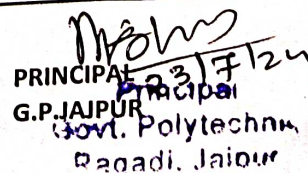 PRINCIPAL
23/7/24
G.P.JAJPUR
Principal
Govt. Polytechnic
Ragadi, Jajpur